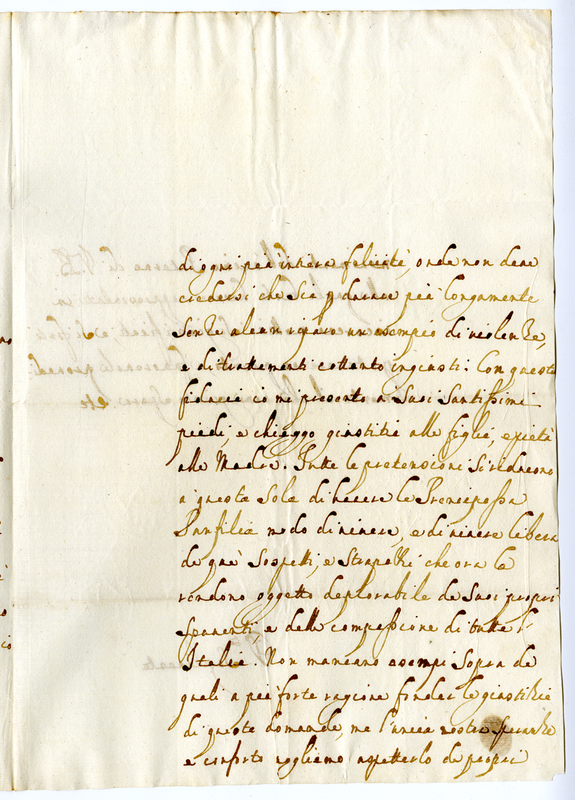 di ogni più intiera felicità, onde non deve
credersi che si perduri più longamente
senza alcun riparo un esempio di violenze,
e di trattamenti cottanto ingiusti. Con questa
fiducia io mi presento a Suoi Santissimi
piedi, e chieggo giustitia alla figlia, e pietà
alla Madre. Tutte le pretensioni si riducono
a questa Sola di havere la Prencipessa
Panfilia modo di vivere, e di vivere libera
da què Sospetti, e Strapazzi che ora la
rendono oggetto deplorabile de Suoi proprii
spaventi e della compassione di tutta l'
Italia. Non mancano esempi sopra de
quali a più forte ragione fondar la giustitia
di queste domande, ma l'unica nostra speranza
e conforto vogliamo aspettarlo da proprii